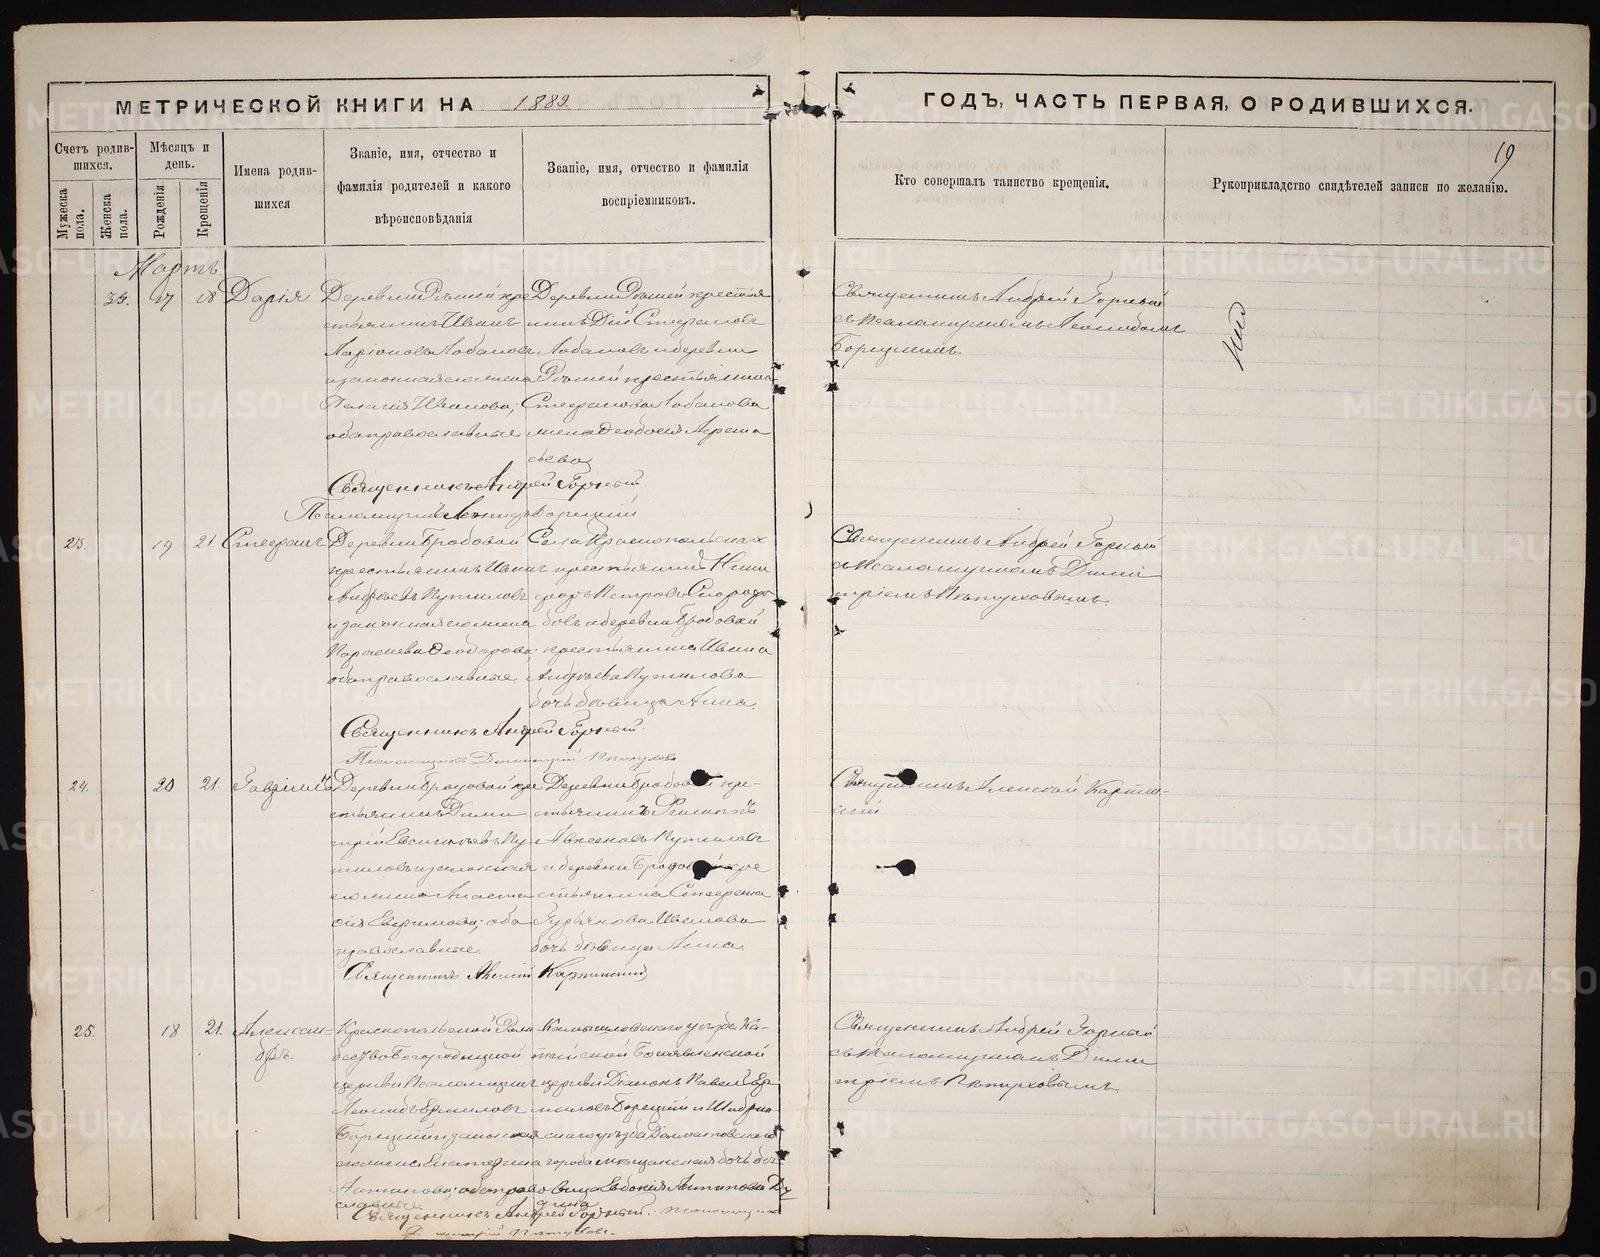 МЕТРИЧЕСКОЙ КНИГИ НА 1889
ГОДЪ, ЧАСТЬ ПЕРВАЯ, О РОДИВШИХСЯ.
19
Счетъ родив-
шихся.
Мужеска
пола.
Женска
пола.
Мѣсяцъ и
день.
Рожденія
Крещенія
Имена родив-
шихся
Званіе, имя, отчество и
фамилія родителей и какого
вѣроисповѣданія
Званіе, имя, отчество и фамилія
воспріемниковъ.
Кто совершалъ таинство крещенія.
Рукоприкладство свидѣтелей записи по желанію.
Мартъ
17 18 Дарія
Деревни кре
стьянинъ Иванъ
Ларіоновъ Лобановъ
и законная его жена
Пелагія Иванова;
оба православные.
Деревни крестья
нинъ Дій Стефановъ
Лобановъ и деревни
крестьянина
Стефанова Лобанова
жена Феодосія
Священникъ Андрей Горный
съ псаломщикомъ Леонидомъ
Борецкимъ.
Священникъ Андрей Горный
Псаломщикъ Леонидъ Борецкій
23. 19 21. Стефанъ
Деревни Бродовой
крестьянинъ Иванъ
Андреевъ Путиловъ
и законная его жена
Параскева Феодорова;
оба православные.
Села Краснопольскаго
крестьянинъ
Петровъ
и деревни Бродовой
крестьянина Ивана
Андреева Путилова
дочь дѣвица Анна.
Священникъ Андрей Горный
съ псаломщикомъ Дими
тріемъ Пѣтуховымъ.
Священникъ Андрей Горный
Псаломщикъ Димитрій Пѣтуховъ
24. 20 21. Гавріилъ
Деревни Бродовой кре
стьянинъ Дими
трій Пу
тиловъ и законная
его жена Анаста
сія Ефимова; оба
православные.
Деревни Бродовой кре-
стьянинъ
Путиловъ
и деревни Бродовой кре
стьянина Стефана
Иванова
дочь дѣвица Анна.
Священникъ Алексѣй Карпин-
скій
Священникъ Алексій Карпинскій
25. 18 21. Алексан-
дръ.
Краснопольской
Богородицкой
церкви псаломщикъ
Леонидъ Ермиловъ
Борецкій и законная
его жена Екатерина
Антипова; оба право
славные.
Камышловскаго уѣзда
Богоявленской
церкви Діаконъ Павелъ Ер
миловъ Борецкій и Шадрин
скаго уѣзда Долматовскаго
города мѣщанская дочь дѣ
вица Евдокія Антипова
Священникъ Андрей Горный
съ псаломщикомъ Дими
тріемъ Пѣтуховымъ.
Священникъ Андрей Горный. Псаломщикъ
Димитрій Пѣтуховъ.
METRIKI.GASO-URAL.RU